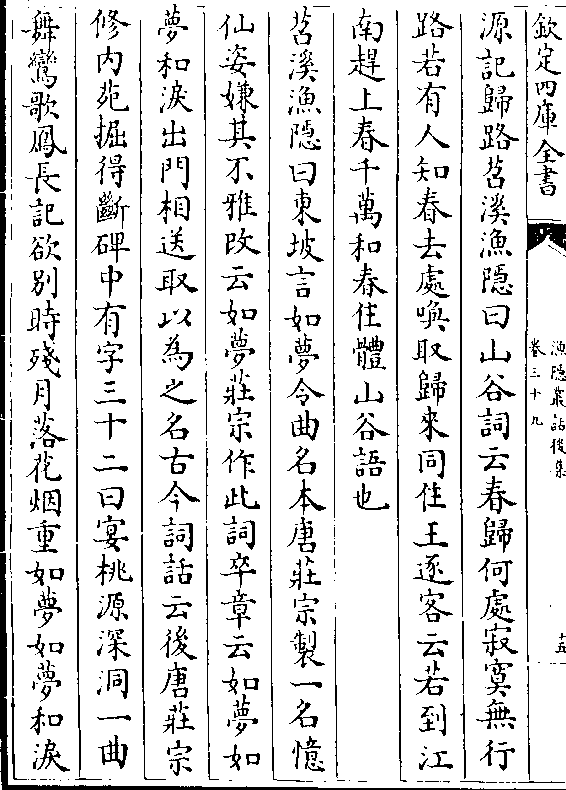 欽定四庫全書
漁隱叢話後集
卷三十九
十五
源記歸路苕溪漁隱曰山谷詞云春歸何處寂寞無行
路若有人知春去處喚取歸來同住王逐客云若到江
南趕上春千萬和春住體山谷語也
苕溪漁隱曰東坡言如夢令曲名本唐莊宗製一名憶
仙姿嫌其不雅改云如夢莊宗作此詞卒章云如夢如
夢和淚出門相送取以為之名古今詞話云後唐莊宗
修内苑掘得斷碑中有字三十二曰宴桃源深洞一曲
舞鸞歌鳳長記欲别時殘月落花烟重如夢如夢和淚